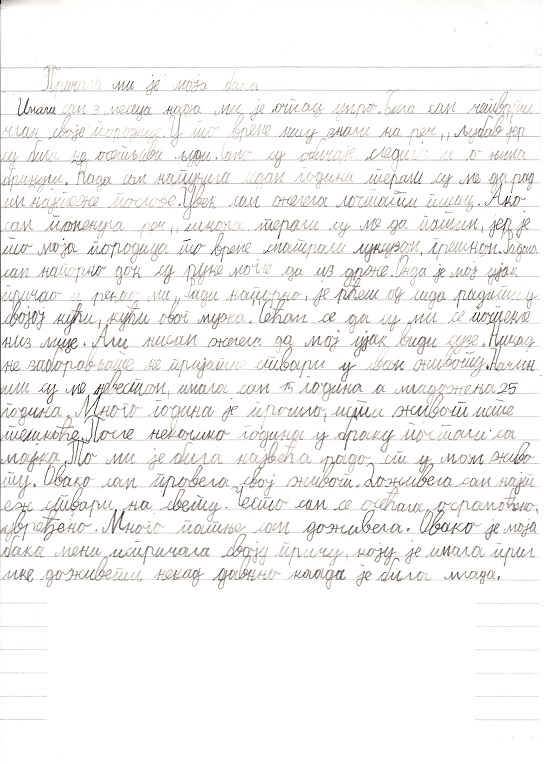 Причала ми је моја бака
Имала сам 3 месеца када ми је отац умро. Била сам четврти
члан своје породице. У то време нису знали на реч „љубав јер
су били не осетљиви људи. су обичаје следили и о њима
бринули. Када сам напунила један година терали су ме да рад
им најтеже послове. Увек сам желела постати писац. Ако
сам поменула реч „школа терали су ме да патим, јер је
то моја породица то време сматрали луксузом, грешном. Радила
сам напорно док су руке могле да из држе. Онда је мој ујак
причао и рекао ми „Ради напорно, јер ћеш од сада радити у
својој кући, кући овог мужа. Сећам се да су ми се
низ лице. Али нисам желела да мој ујак види сузе. Никад
не заборављаше не пријатне ствари у свом животу. Начин
ли су ме невестом, имала сам 15 година а младожења 25
година. Много година је прошло, исти живот исте
тешкоће. После неколико година у браку постала са
мајка. То ми је била највећа радо ст у мом живо
ту. Овако сам провела свој живот. Доживела сам најт
еж ствари на свету. Често сам се осећала
увређено. Много патње сам доживела. Овако је моја
бака мени испричала своју причу, коју је имала прил
ике доживети некад давно каада је била млада.